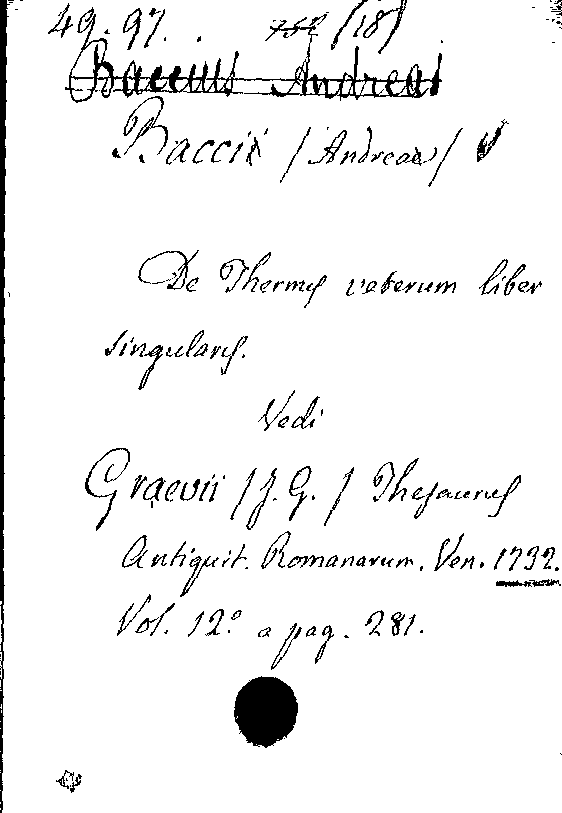 49.97. . 752 (18)
Baccius Andreas
Baccii / Andreae /
De Thermis veterum liber
singularis.
Vedi
Graevii / J. G. / Thesaurus
Antiquit. Romanarum. Ven. 1732.
Vol. 12º a pag. 281.